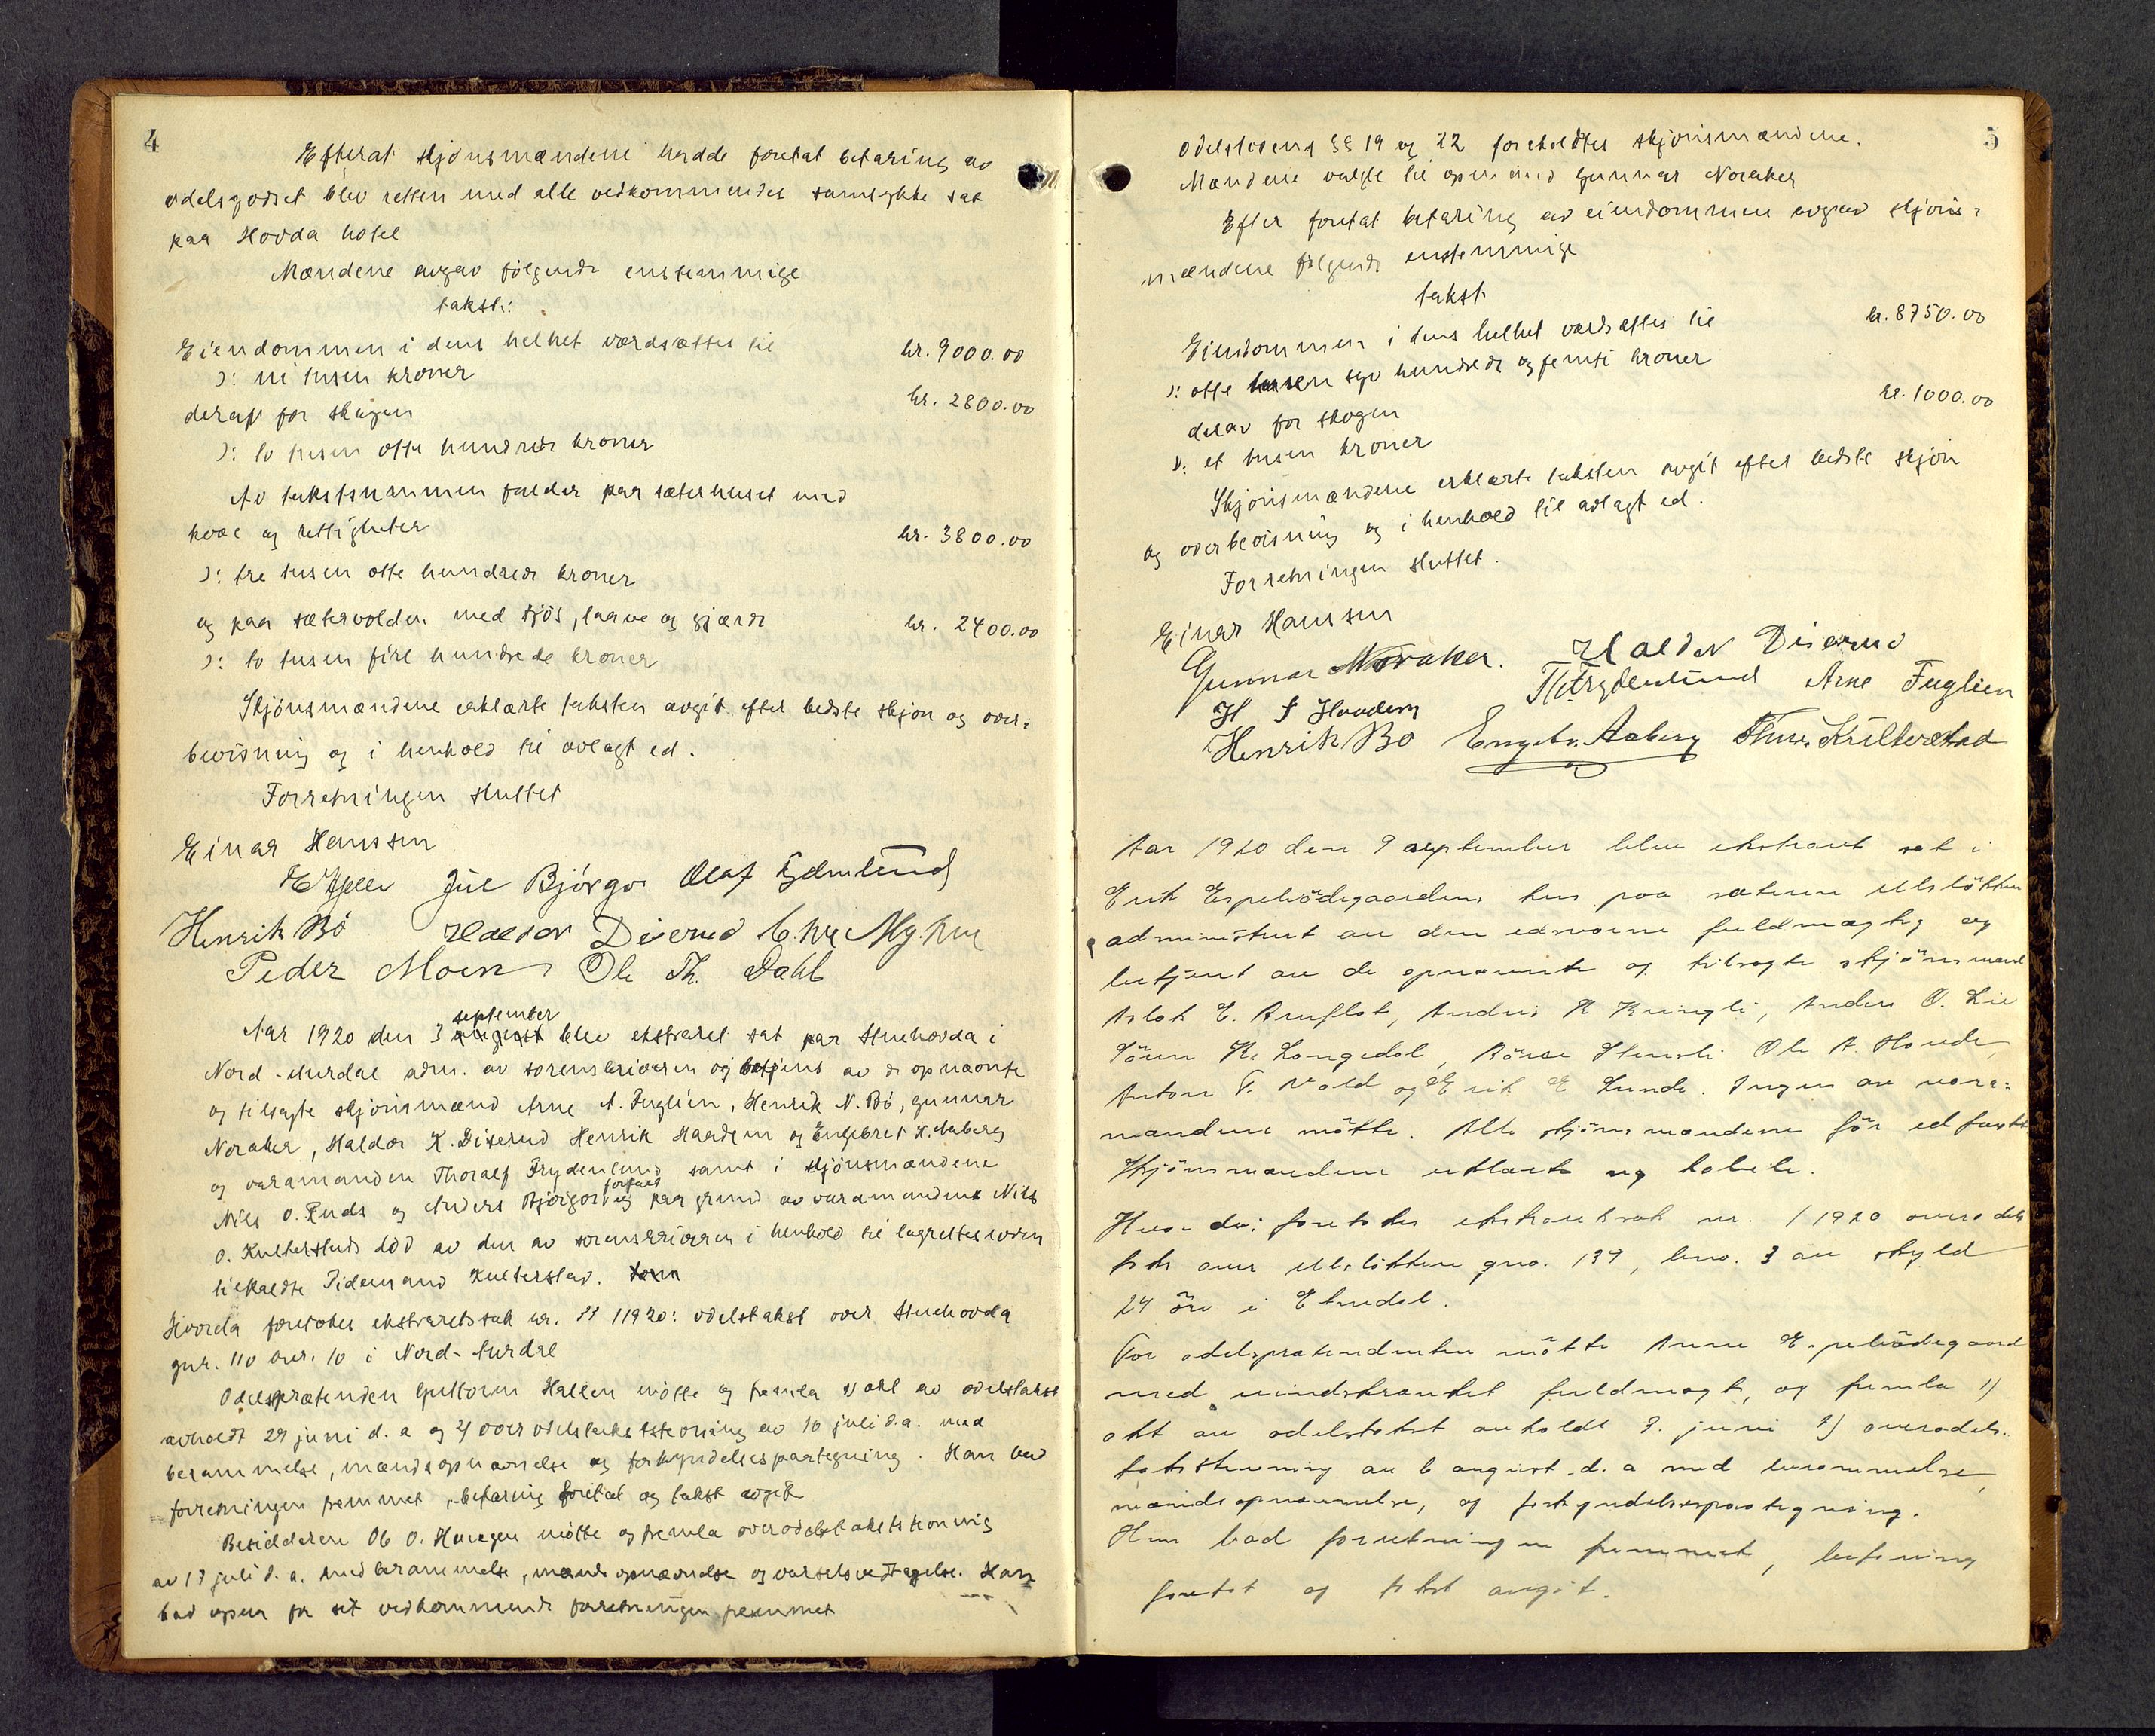 4
Efterat skjønsmændene hadde foretat befaring av
odelsgodset blev retten med alle vedkommendes samtykke sat
paa Hovda hotel
Mændene avgav følgende enstemmige
takst:
Eiendommen i dens helhet værdsættes til kr. 9000.00
ɔ: ni tusen kroner
derav for skogen kr. 2800.00
ɔ: to tusen otte hundrede kroner
Av takstsummen falder paa sæterhuset med
kvæe og rettigheter kr. 3800.00
ɔ: tre tusen otte hundrede kroner
og paa sætervolden med fjøs, laave og gjærde kr. 2400.00
ɔ: to tusen fire hundrede kroner
Skjønsmændene erklærte taksten avgit efter bedste skjøn og over-
bevisning og i henhold til avlagt ed.
Forretningen sluttet
Einar Hanssen
Jul Bjørgo Olaf
Henrik Bø Haldor Diserud
Peder Moen Ole Th. Dahl
september
Aar 1920 den 3 august blev ekstraret sat paa Stuehovda i
Nord-Aurdal adm. av sorenskriveren og betjent av de opnævnte
og tilsagte skjønsmænd Arne A. Fuglien, Henrik N. Bø, Gunnar
Noraker, Haldor K. Diserud Henrik Haadem og Engebret H. Aaberg
og varamanden Thoralf Frydenlund samt i skjønsmændene
Nils O. Ruds og Anders Bjørgos forfald og paa grund av varamandens Nils
O. Kulterstads død av den av sorenskriveren i henhold til lagretteloven
tilkaldte Tidemand Kulterstad.
Hvorda foretokes ekstraretssak nr. 1920: odelstakst over Stuehovda
gnr. 110 bnr. 10 i Nord-Aurdal
Odelsprætendenten Guttorm Hallen møtte og fremla 1) akt av odelstakst
avholdt 29 juni d. a og 2) overodelstakststevning av 10 juli d.a. med
berammelse, mændsopnævnelse og forkyndelsespaategning. Han bad
forretningen fremmet, befaring foretat og takst avgit
Besidderen Ole O. Haugen møtte og fremla overodelstakststevning
av 17 juli d. a. med berammelse, mændsopnævnelse og varselsvedtagelse. Han
bad ogsaa for sit vedkommende forretningen fremmet
5
Odelslovens §§ 19 og 22 foreholdtes skjønsmændene.
Mændene valgte til opmand Gunnar Noraker
Efter foretat befaring av eiendommen avgav skjøns-
mændene følgende enstemmige
takst
Eiendommen i dens helhet værdsættes til kr. 8750.00
ɔ: otte tusen syv hundrede og femti kroner
derav for skogen kr. 1000.00
ɔ: et tusen kroner
Skjønsmændene erklærte taksten avgit efter bedste skjøn
og overbevisning og i henhold til avlagt ed.
Forretningen sluttet.
Einar Hanssen
Gunnar Noraker. Haldor Diserud
H Haadem Th Frydenlund Arne Fuglien
Henrik Bø Engebr. Aaberg Kulterstad
Aar 1920 den 9 september blev ekstraret sat i
Erik Espelødegaardens hus paa sæteren Ulsløkken
administrert av den edsvorne fuldmægtig og
betjent av de opnævnte og tilsagte skjønsmænd
Aslak E. Bruflat, Anders Kringli, Anders O. Lie
Sören K. Langedal, Börre Stensli Ole A. Hovde,
Anton T. Vold og Erik E Lunde. Ingen av vara-
mændene møtte. Alle skjønsmændene før edfæstet
Skjønsmændene erklærte sig habile.
Hvorda: foretokes ekstraretssak nr. / 1920 overodels
takst over Ulsløkken gno. 139, bno. 3 av skyld
24 øre i Etnedal.
For odelsprætendenten møtte Anne Espelødegaard
med uindskrænket fuldmagt, og fremla 1)
akt av odelstakst avholdt 9. juni 2) overodels-
takststevning av 6 august d. a med berammelse,
mændsopnævnelse, og forkyndelsespaategning.
Hun bad forretningen fremmet, befaring
foretat og takst avgit.